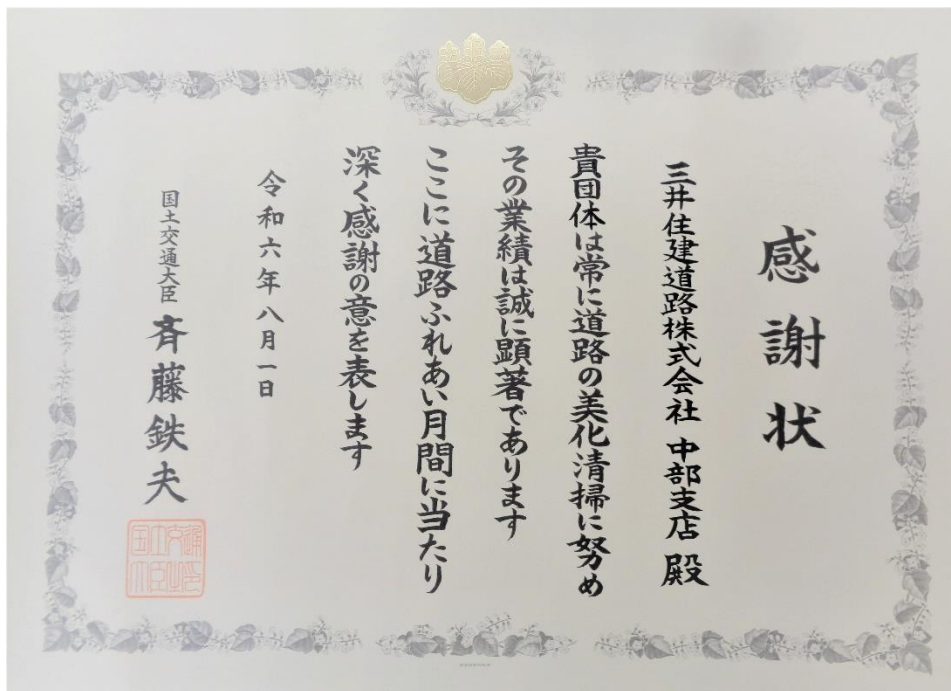 感謝状
三井住建道路株式会社 中部支店 殿
貴団体は常に道路の美化清掃に努め
その業績は誠に顕著であります
ここに道路ふれあい月間に当たり
深く感謝の意を表します
令和六年八月一日
国土交通大臣 斉藤鉄夫
国土交通大臣之印